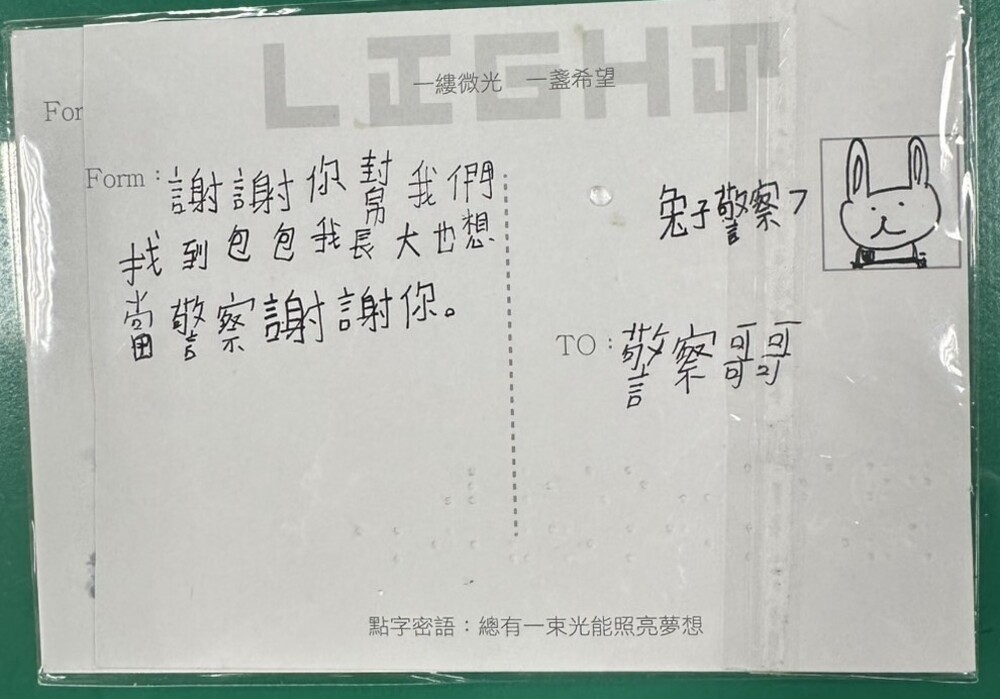 LIGHT
一縷微光 一盞希望
For
Form：謝謝你幫我們
找到包包我長大也想
當警察謝謝你。
兔子警察
TO：警察哥哥
點字密語：總有一束光能照亮夢想